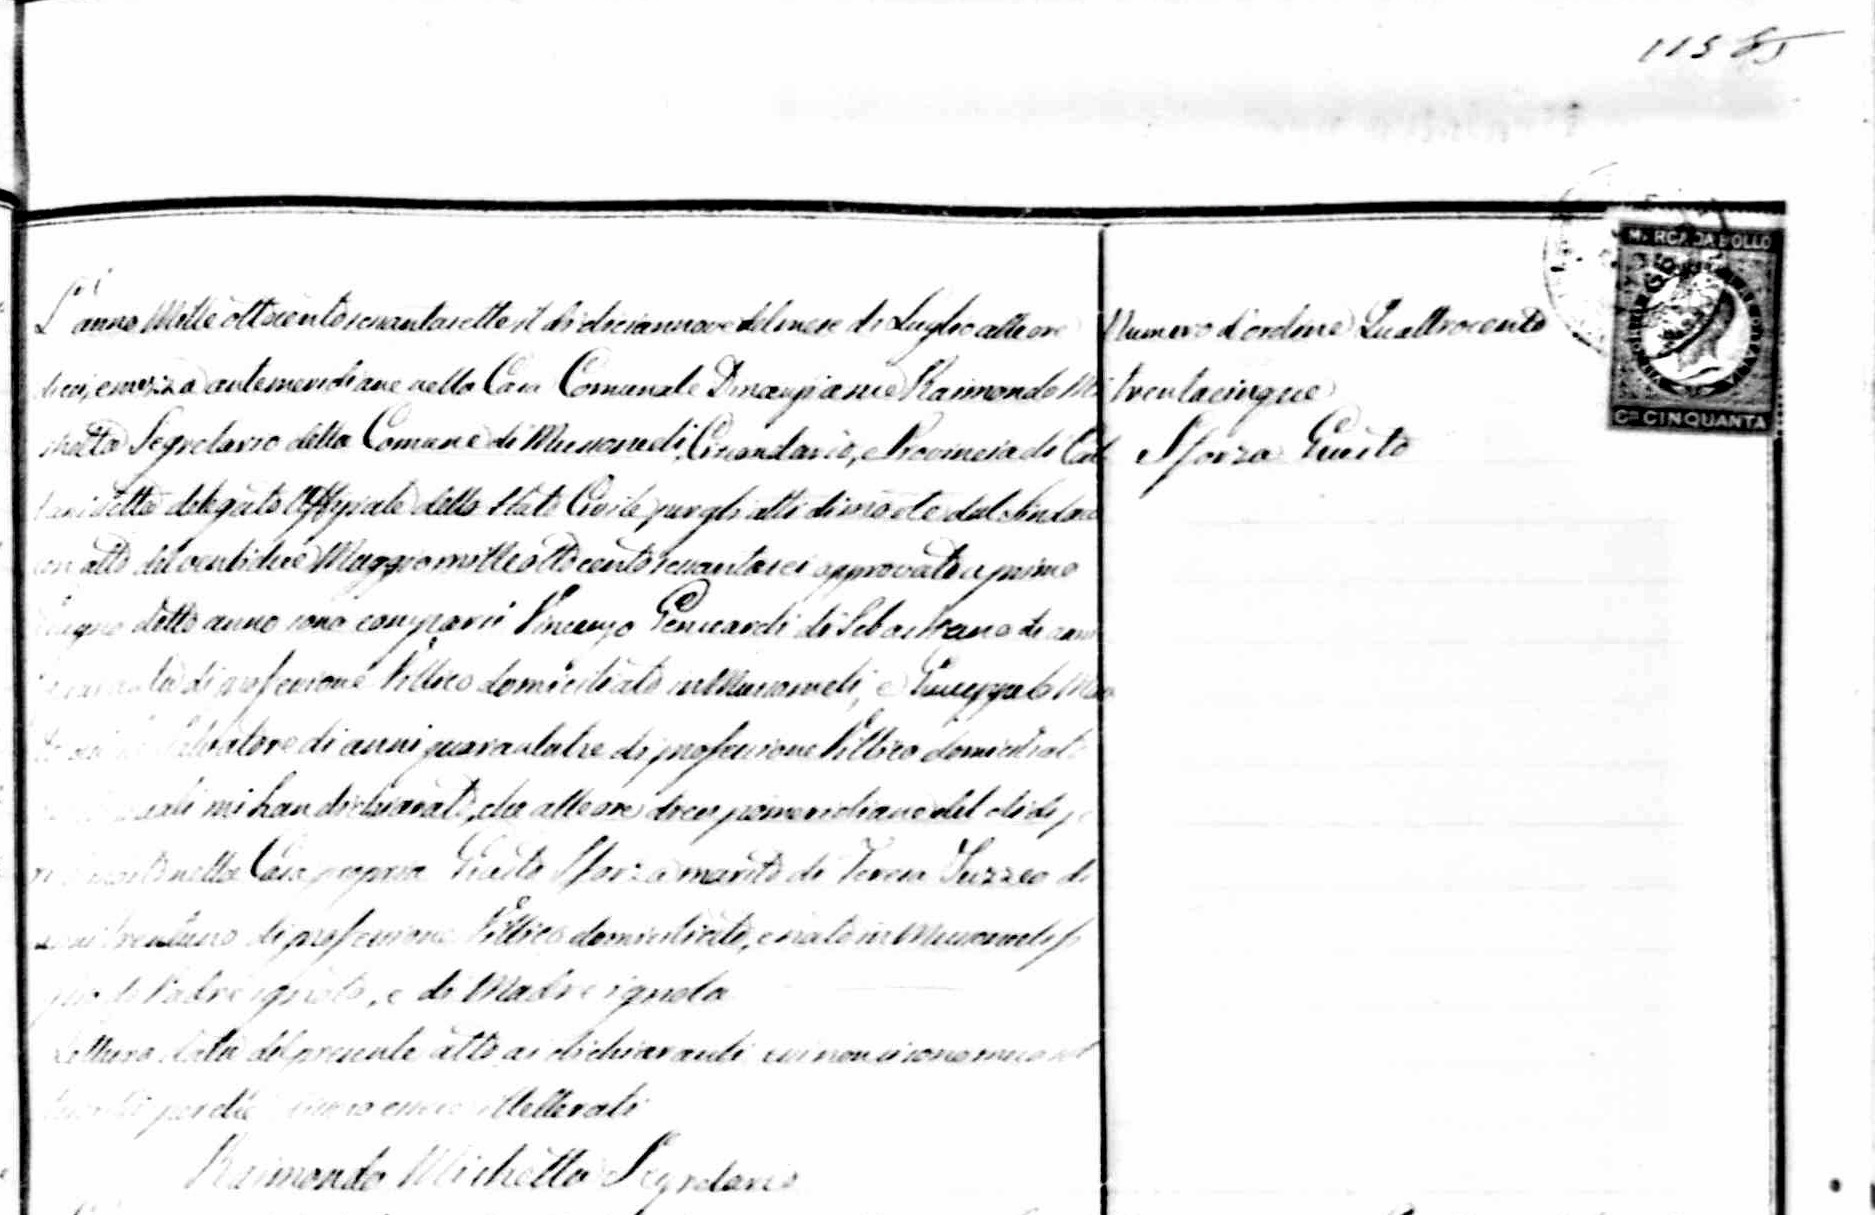 115 85
MARCA DA BOLLO
Cmi CINQUANTA
L'anno Mille ottocento sessantasette il dì diciannove del mese di Luglio alle ore
dieci, e mezza antemeridiane nella Casa Comunale Dinanzi a me Raimondo Mi
chetta Segretario della Comune di Mussomeli, Circondario, e Provincia di Cal
tanisetta delegato Uffiziale dello Stato Civile per gli atti di morte dal Sindaco
con atto del ventidue Maggio mille ottocento sessantasei approvato a primo
Giugno detto anno sono comparsi Vincenzo Genuardi di Sebastiano di anni
di professione Villico domiciliato in Mussomeli, e Giuseppe
Salvatore di anni quarantatre di professione Villico domiciliato
quali mi han dichiarato, che alle ore dieci pomeridiane del dì di
morto nella Casa propria Giusto Sforza marito di Teresa di
anni trentuno di professione Villico domiciliato, e nato in Mussomeli fi
glio di Padre ignoto, e di Madre ignota
Lettura data del presente atto ai dichiaranti cui non si sono
perché essere illetterati
Raimondo Michetta Segretario
Numero d'ordine Quattrocento
trentacinque
Sforza Giusto